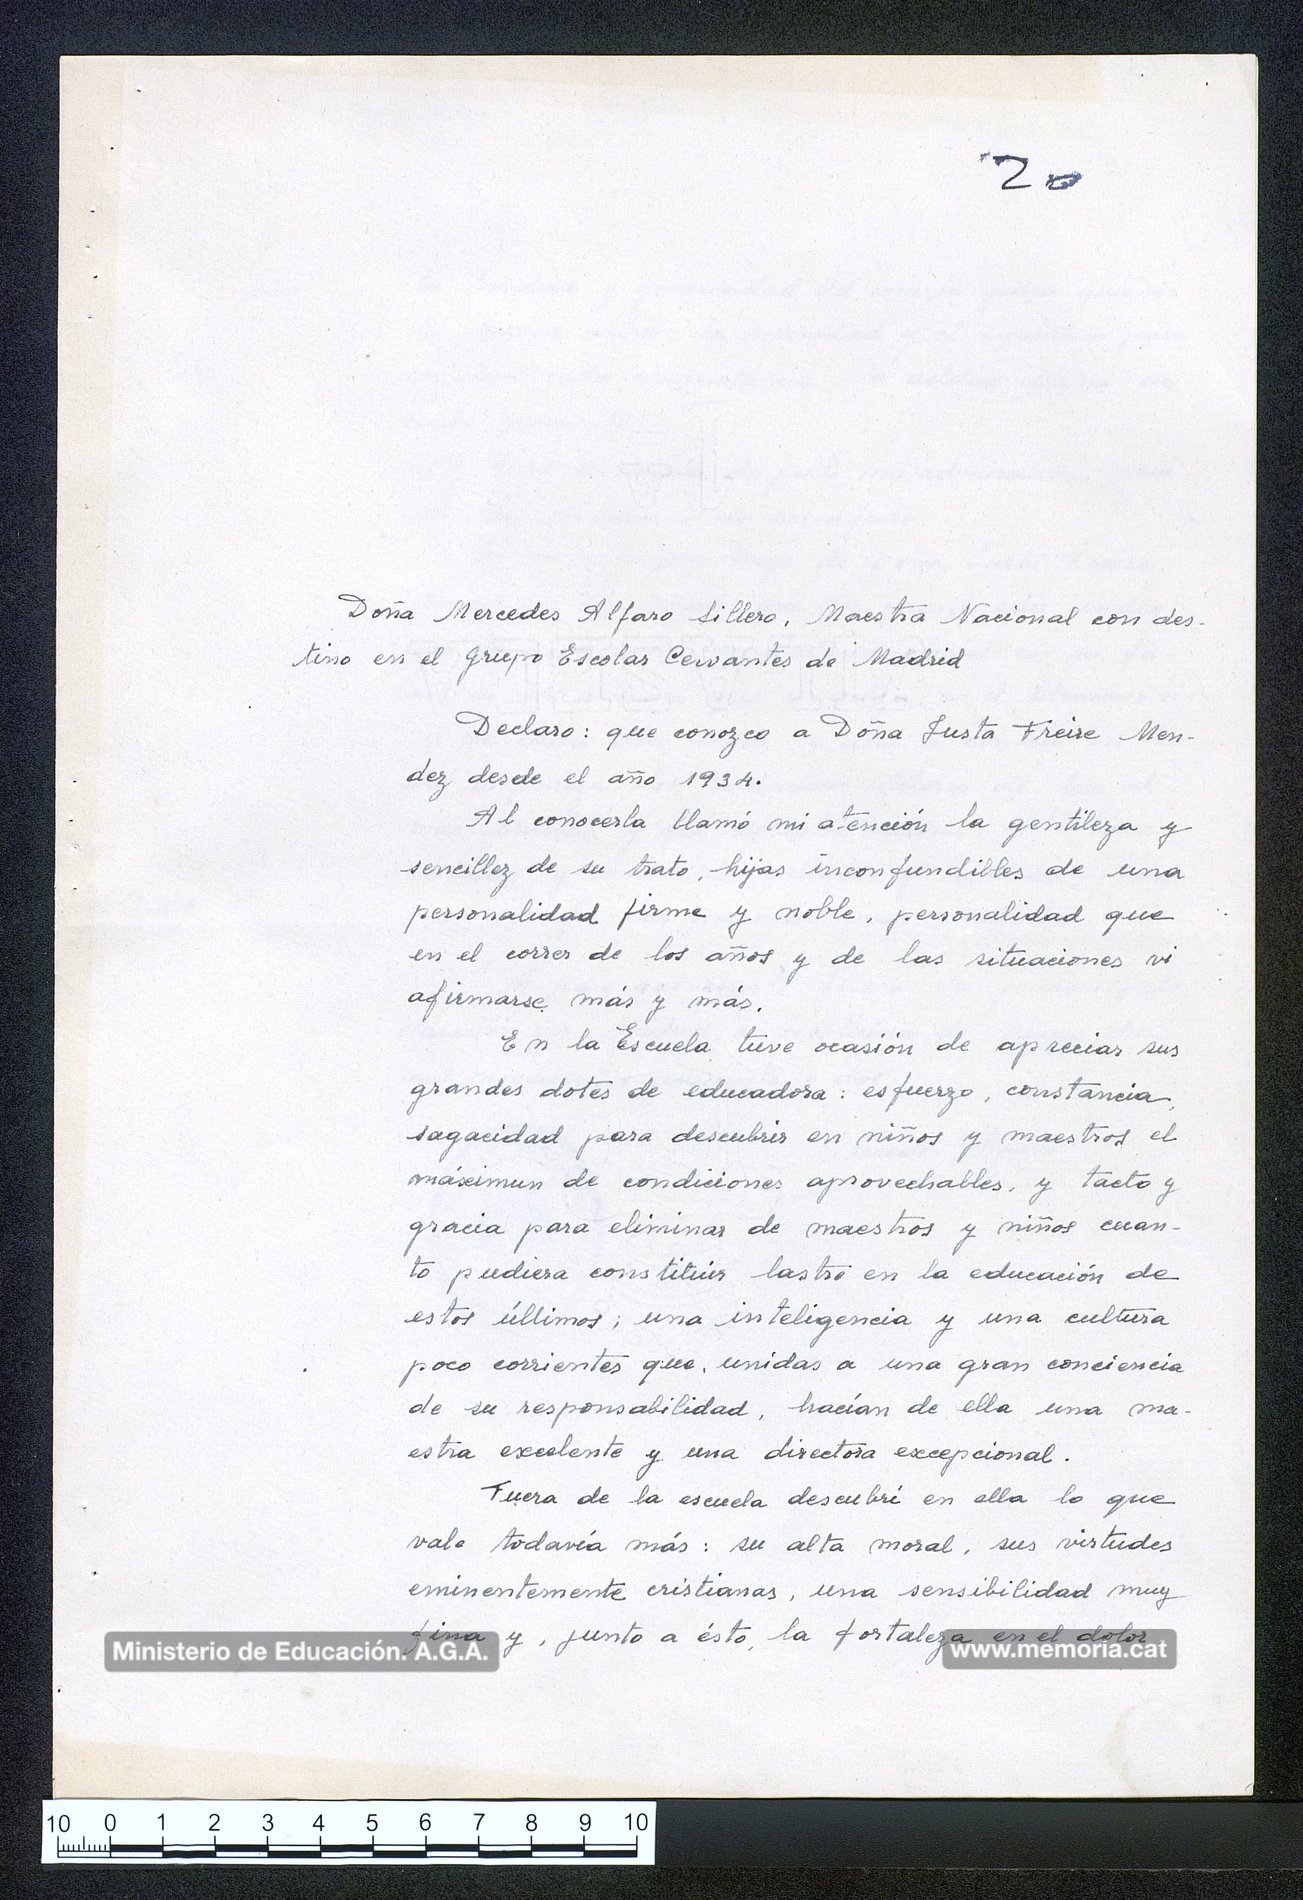 20
Doña Mercedes Alfaro Sillero, Maestra Nacional con des-
tino en el Grupo Escolar Cervantes de Madrid
Declaro: que conozco a Doña Justa Freire Men-
dez desde el año 1934.
Al conocerla llamó mi atención la gentileza y
sencillez de su trato, hijas inconfundibles de una
personalidad firme y noble, personalidad que
en el correr de los años y de las situaciones vi
afirmarse más y más.
En la Escuela tuve ocasión de apreciar sus
grandes dotes de educadora: esfuerzo, constancia,
sagacidad para descubrir en niños y maestros el
máximun de condiciones aprovechables, y tacto y
gracia para eliminar de maestros y niños cuan-
to pudiera constituir lastre en la educación de
estos últimos; una inteligencia y una cultura
poco corrientes que, unidas a una gran conciencia
de su responsabilidad, hacían de ella una ma-
estra excelente y una directora excepcional.
Fuera de la escuela descubrí en ella lo que
vale todavía más: su alta moral, sus virtudes
eminentemente cristianas, una sensibilidad muy
fina y, junto a ésto, la fortaleza en el dolor
Ministerio de Educación. A.G.A.
www.memoria.cat
10 0 1 2 3 4 5 6 7 8 9 10